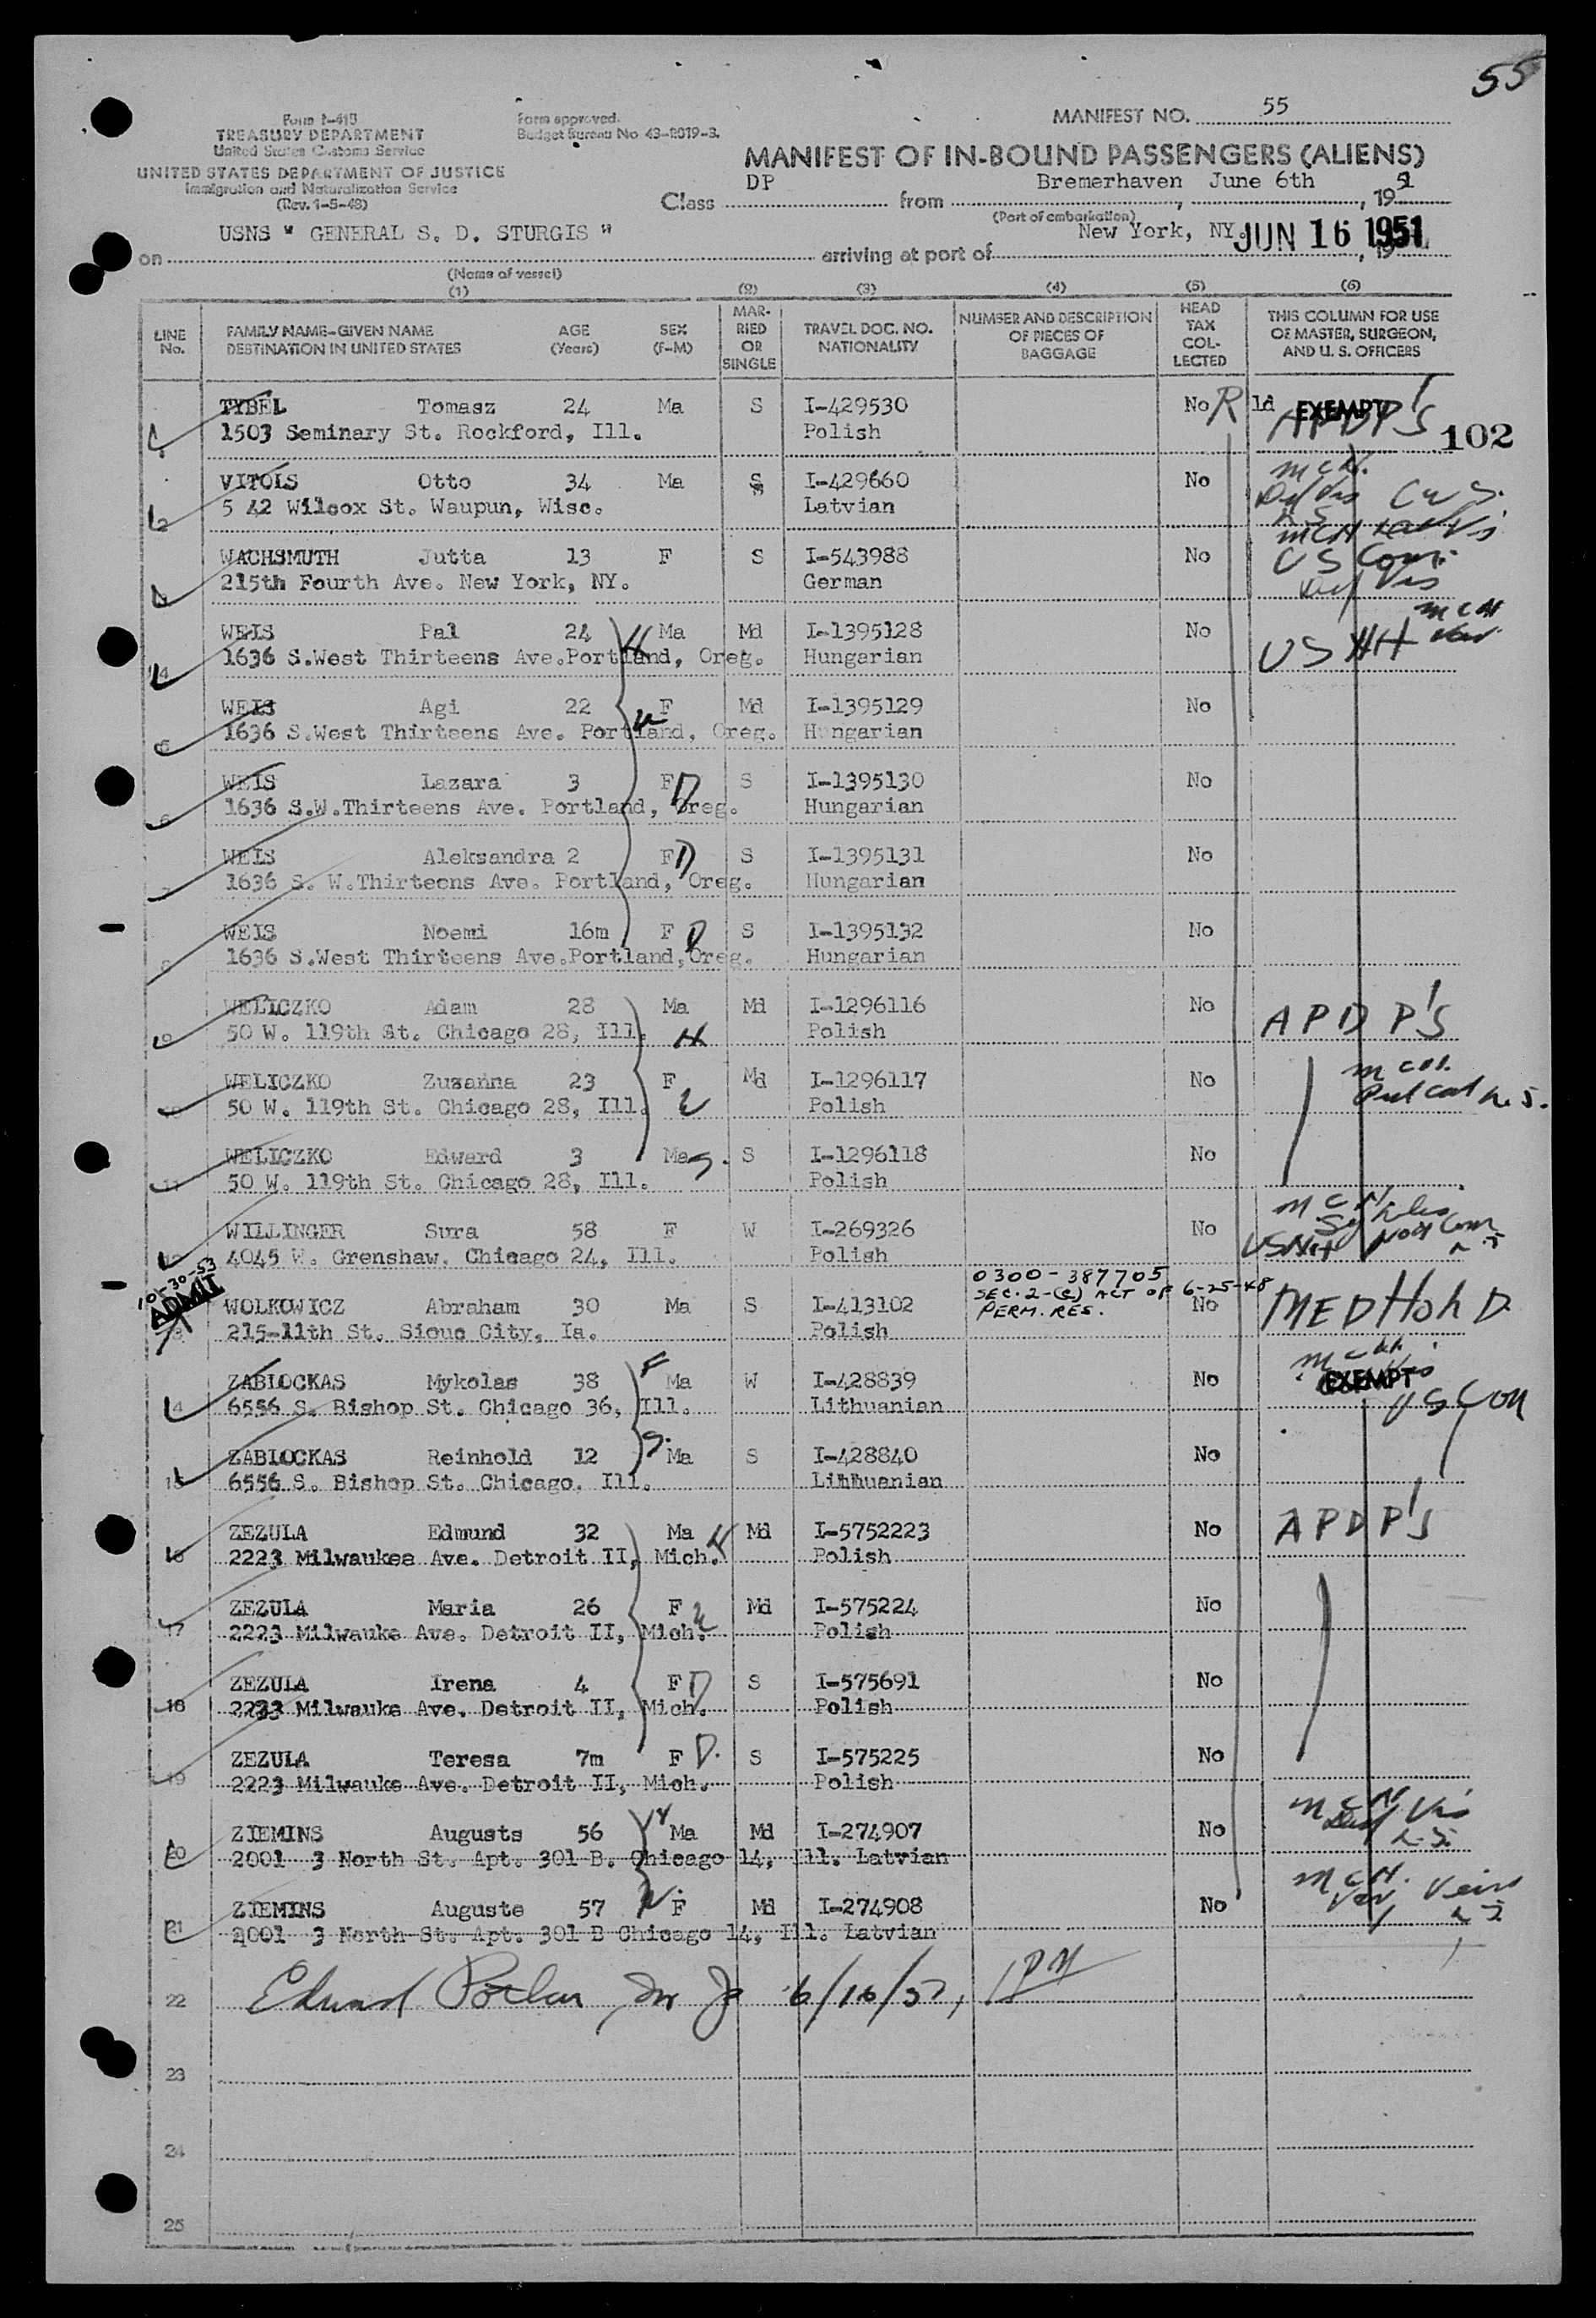 55
Form I-415
TREASURY DEPARTMENT
United States Customs Service
UNITED STATES DEPARTMENT OF JUSTICE
Immigration and Naturalization Service
(Rev. 1-5-48)
Form approved.
Budget Bureau No. 43-R019-3.
MANIFEST NO. 55
MANIFEST OF IN-BOUND PASSENGERS (ALIENS)
Class DP from Bremerhaven, June 6th, 1951
(Port of embarkation)
on USNS " GENERAL S. D. STURGIS " arriving at port of New York, NY. JUN 16 1951, 19
(Name of vessel)
(1) (2) (3) (4) (5) (6)
LINE No.
FAMILY NAME-GIVEN NAME
DESTINATION IN UNITED STATES
AGE (Years)
SEX (F-M)
MARRIED OR SINGLE
TRAVEL DOC. NO. NATIONALITY
NUMBER AND DESCRIPTION OF PIECES OF BAGGAGE
HEAD TAX COLLECTED
THIS COLUMN FOR USE OF MASTER, SURGEON, AND U. S. OFFICERS
TYBEL Tomasz 24 Ma S I-429530 No R ld EXEMPT APDP'S
1503 Seminary St. Rockford, Ill. Polish 102
2 VITOLS Otto 34 Ma S I-429660 No
5 42 Wilcox St. Waupun, Wisc. Latvian
3 WACHSMUTH Jutta 13 F S I-543988 No
215th Fourth Ave. New York, NY. German
4 WEIS Pal 24 H Ma Md I-1395128 No
1636 S.West Thirteens Ave.Portland, Oreg. Hungarian
5 WEIS Agi 22 W F Md I-1395129 No
1636 S.West Thirteens Ave. Portland, Oreg. Hungarian
6 WEIS Lazara 3 F D S I-1395130 No
1636 S.W.Thirteens Ave. Portland, Oreg. Hungarian
7 WEIS Aleksandra 2 F D S I-1395131 No
1636 S. W.Thirteens Ave. Portland, Oreg. Hungarian
8 WEIS Noemi 16m F D S I-1395132 No
1636 S.West Thirteens Ave.Portland,Oreg. Hungarian
9 WELICZKO Adam 28 Ma Md I-1296116 No APD P'S
50 W. 119th St. Chicago 28, Ill. H Polish
10 WELICZKO Zuzanna 23 F Md I-1296117 No
50 W. 119th St. Chicago 28, Ill. W Polish
11 WELICZKO Edward 3 Ma S. S I-1296118 No
50 W. 119th St. Chicago 28, Ill. Polish
12 WILLINGER Sura 58 F W I-269326 No
4045 W. Grenshaw. Chicago 24, Ill. Polish
10-30-53
ADMIT
0300-387705
SEC. 2-(c) ACT OF 6-25-48
PERM. RES.
13 WOLKOWICZ Abraham 30 Ma S I-413102 No MED HOLD
215-11th St. Sioux City, Ia. Polish
14 ZABLOCKAS Mykolas 38 F Ma W I-428839 No EXEMPT
6556 S. Bishop St. Chicago 36, Ill. Lithuanian US Con
15 ZABLOCKAS Reinhold 12 S. Ma S I-428840 No
6556 S. Bishop St. Chicago. Ill. Lithuanian
16 ZEZULA Edmund 32 Ma H Md I-5752223 No APD P'S
2223 Milwaukee Ave. Detroit II, Mich. Polish
17 ZEZULA Maria 26 F W Md I-575224 No
2223 Milwauke Ave. Detroit II, Mich. Polish
18 ZEZULA Irena 4 F D S I-575691 No
2223 Milwauke Ave. Detroit II, Mich. Polish
19 ZEZULA Teresa 7m F D. S I-575225 No
2223 Milwauke Ave. Detroit II, Mich. Polish
20 ZIEMINS Augusts 56 Ma Md I-274907 No
2001 3 North St. Apt. 301 B. Chicago 14, Ill. Latvian
21 ZIEMINS Auguste 57 W. F Md I-274908 No
2001 3 North St. Apt. 301 B Chicago 14, Ill. Latvian
22
23
24
25